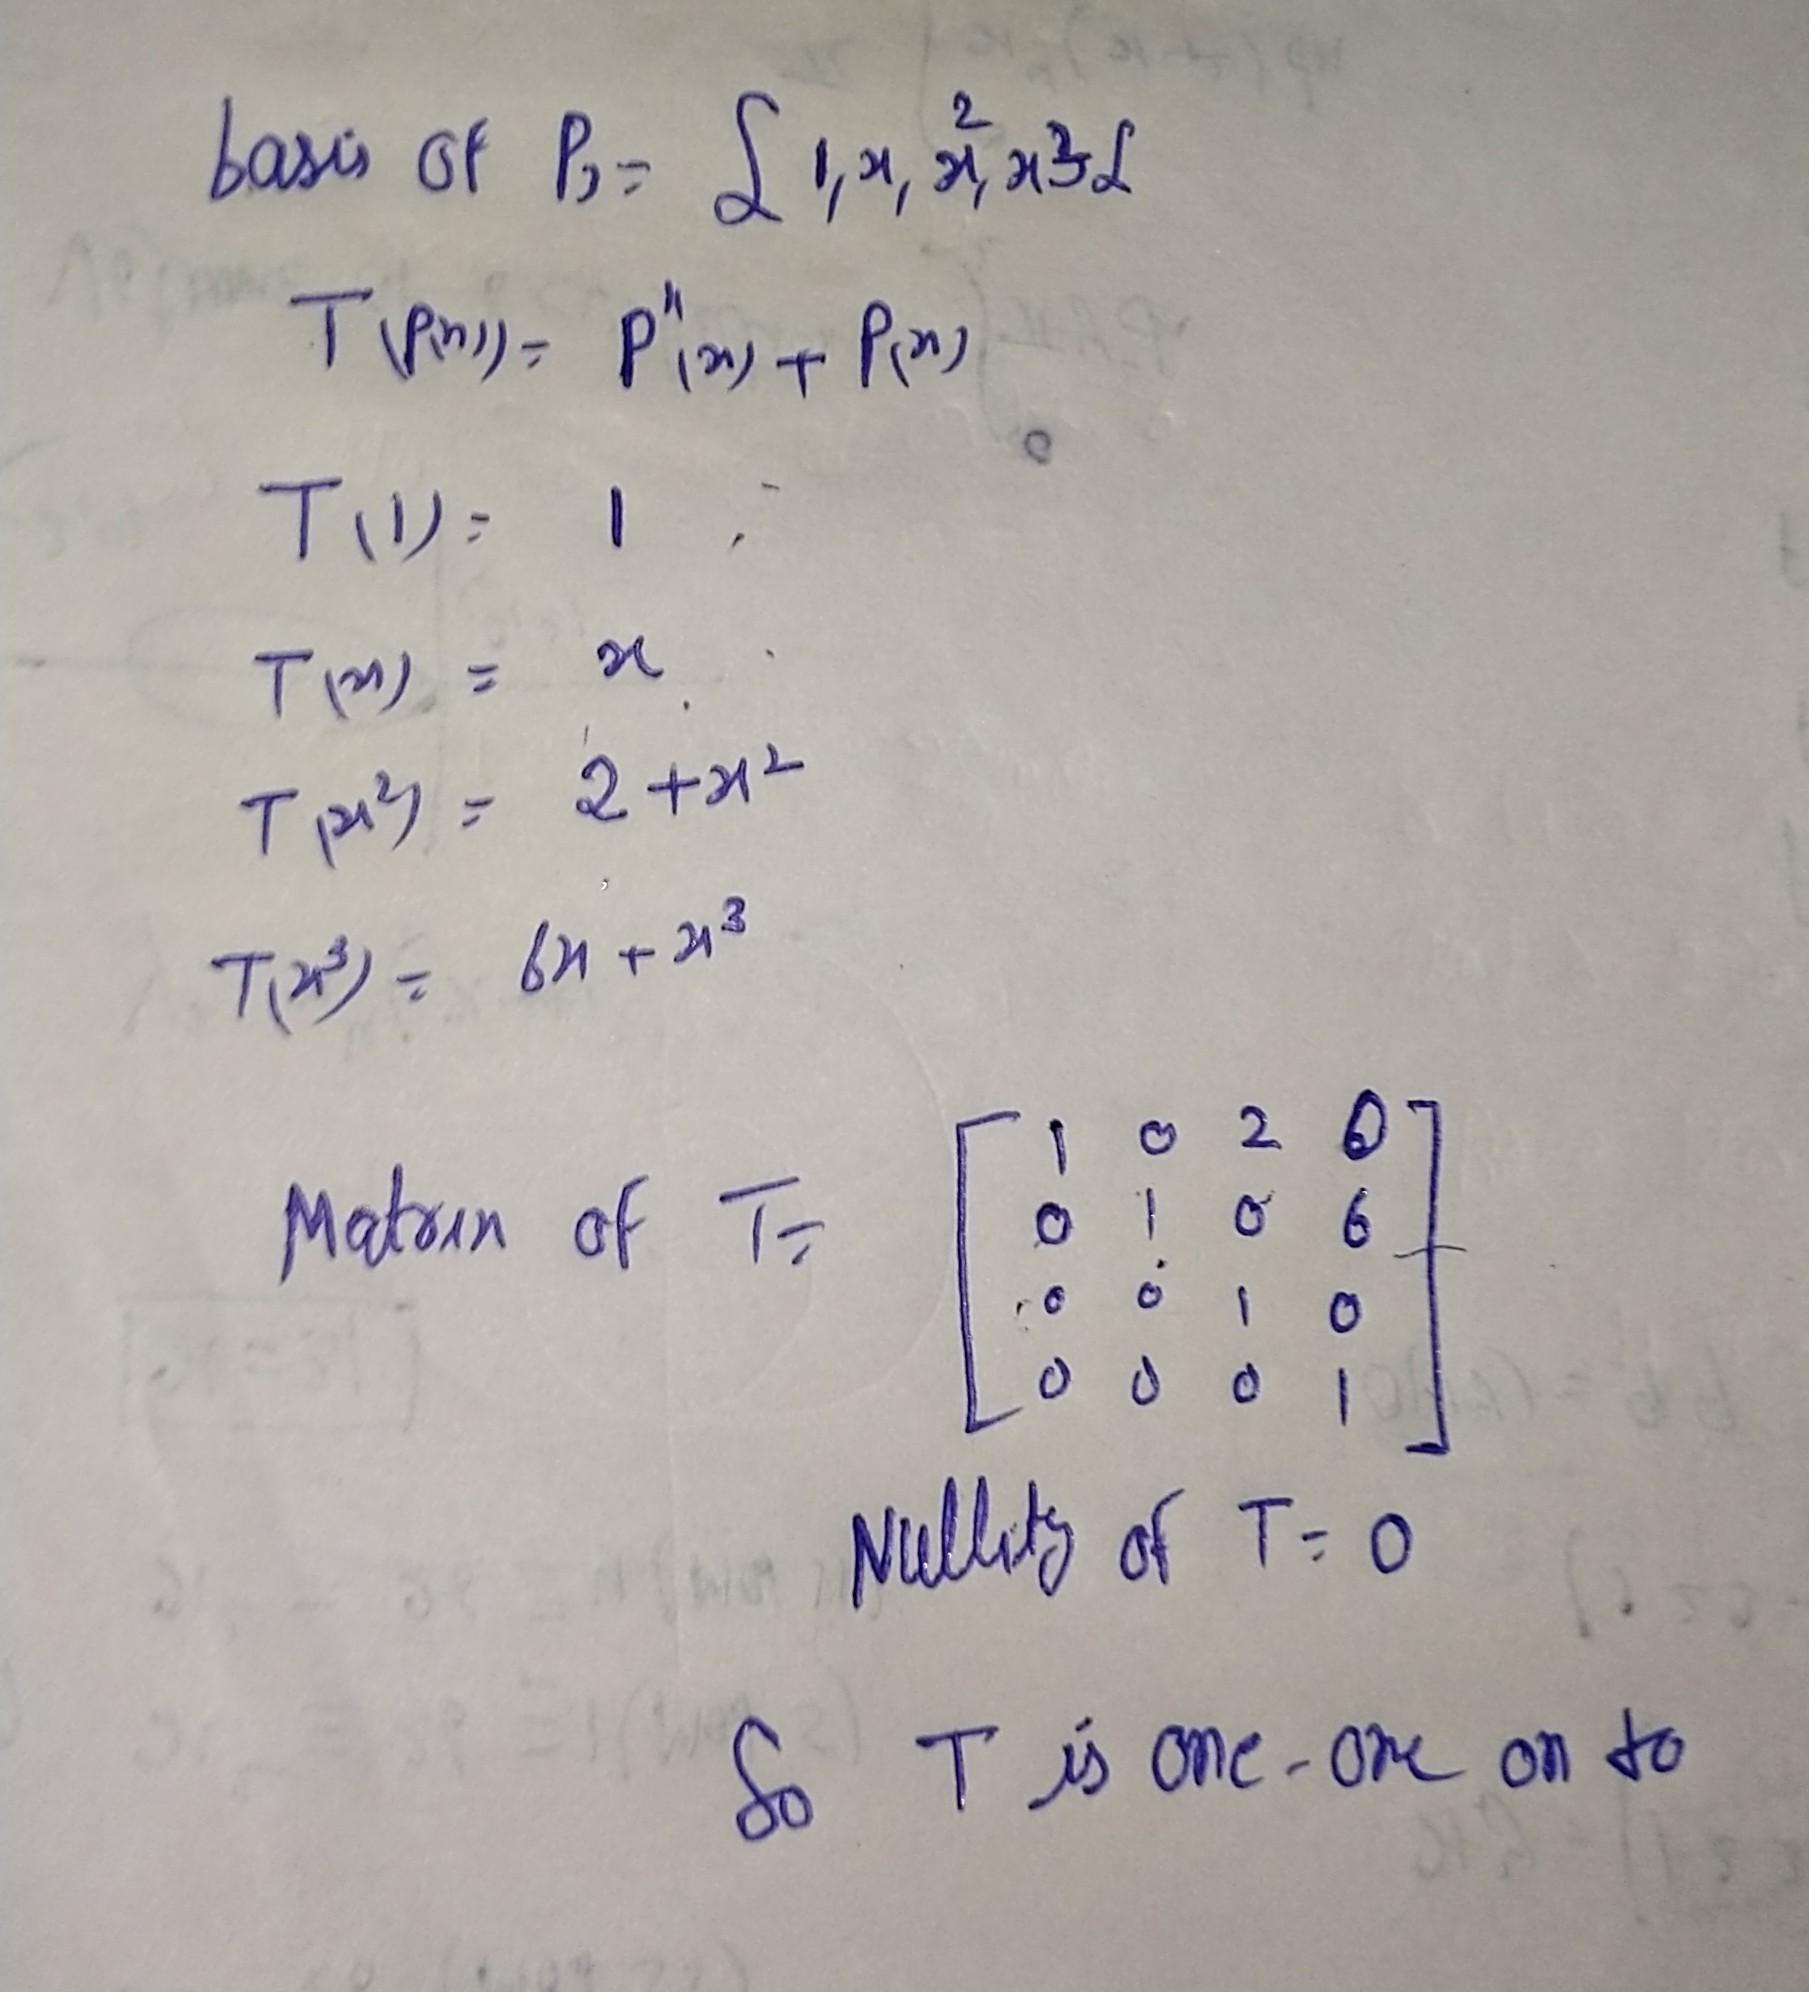 basis of P₃ = { 1, x, x², x³ }
T(P(x)) = P''(x) + P(x)
T(1) = 1
T(x) = x
T(x²) = 2 + x²
T(x³) = 6x + x³
1 0 2 0
Matrix of T = 0 1 0 6
0 0 1 0
0 0 0 1
Nullity of T = 0
So T is one-one on to